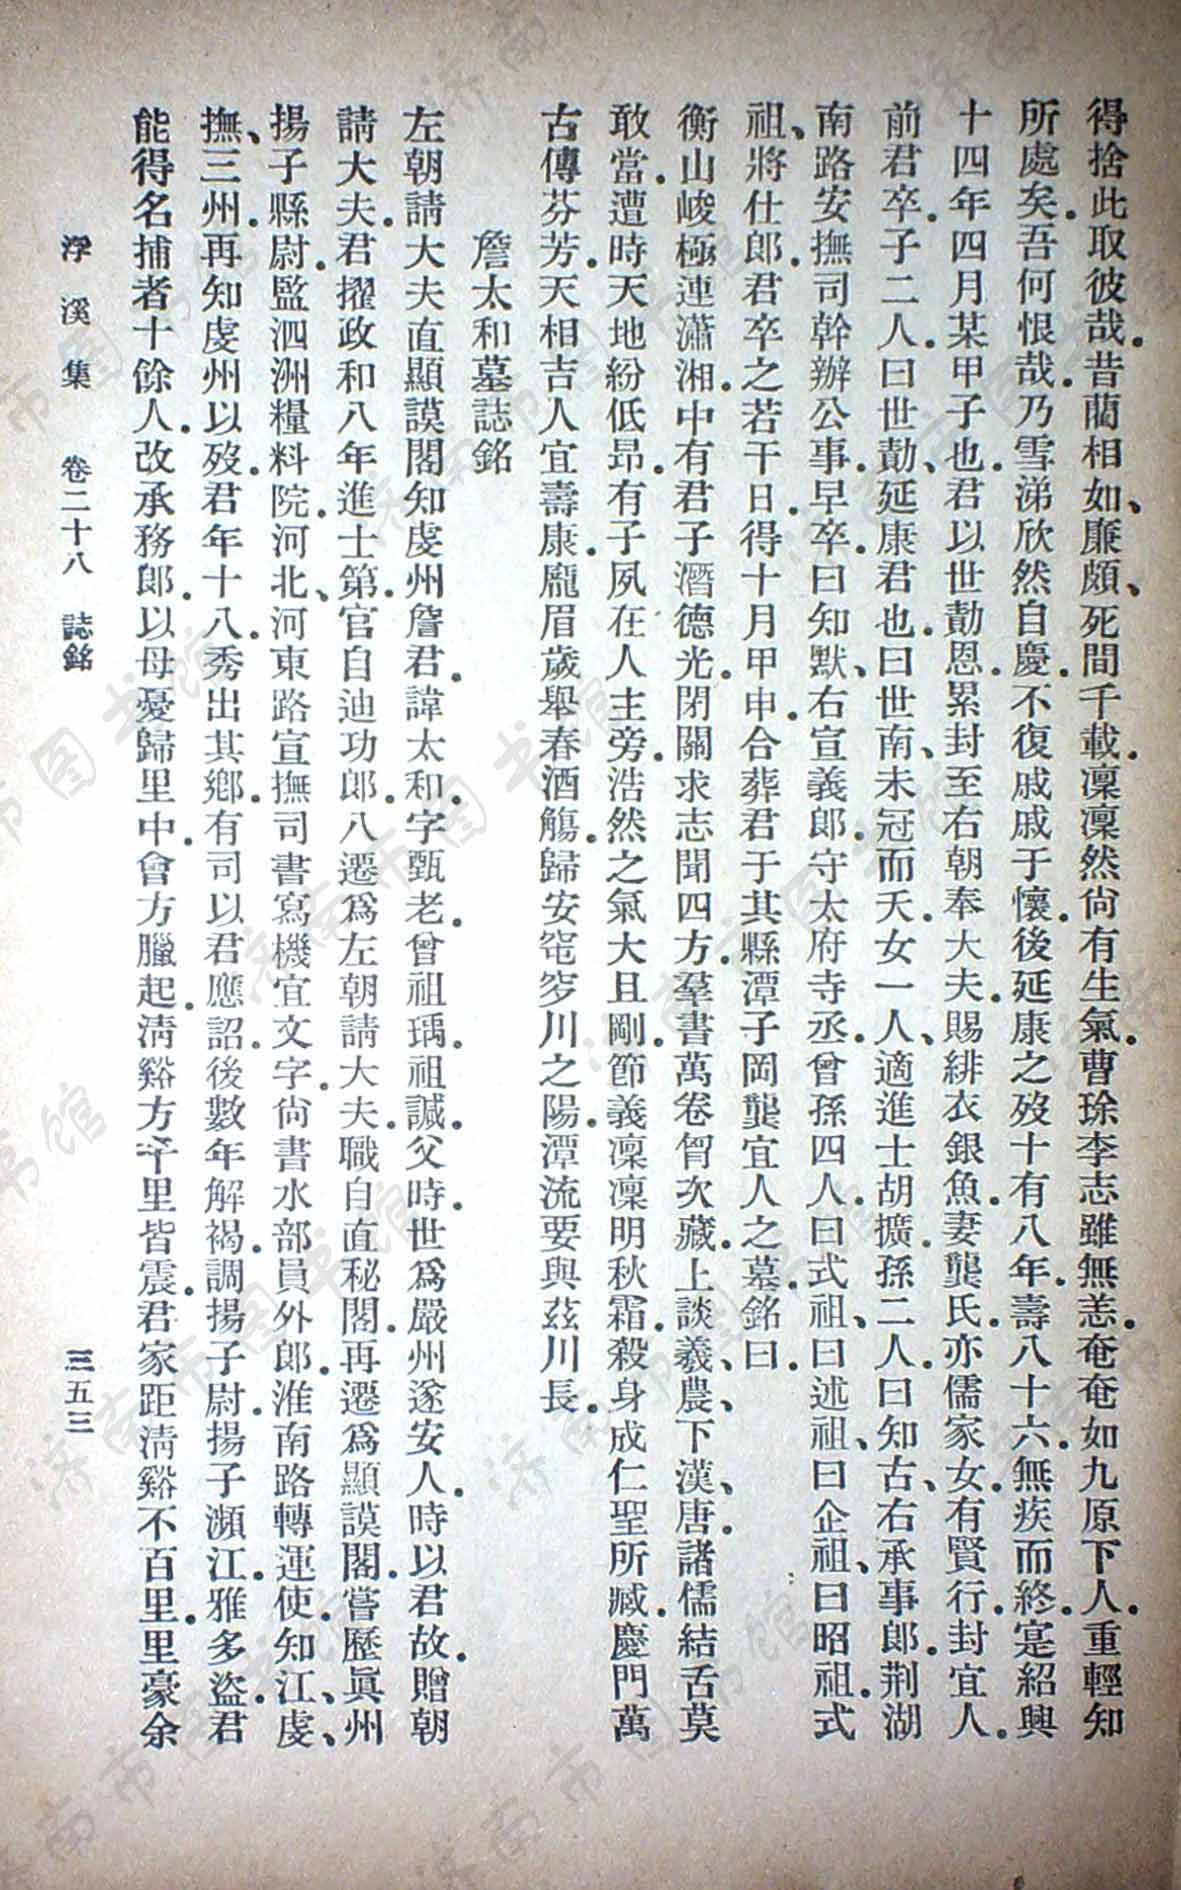 得捨此取彼哉。昔藺相如、廉頗、死間千載。凜凜然尙有生氣。曹蜍李志雖無恙。奄奄如九原下人。重輕知
所處矣。吾何恨哉。乃雪涕欣然自慶。不復戚戚于懷。後延康之歿十有八年。壽八十六。無疾而終。寔紹興
十四年四月某甲子也。君以世勣恩。累封至右朝奉大夫。賜緋衣銀魚。妻龔氏。亦儒家女。有賢行。封宜人。
前君卒。子二人。曰世勣、延康君也。曰世南、未冠而夭。女一人、適進士胡擴。孫二人。曰知古、右承事郎。荆湖
南路安撫司幹辦公事。早卒。曰知默、右宣義郎。守太府寺丞。曾孫四人。曰式祖、曰述祖、曰企祖、曰昭祖。式
祖、將仕郎。君卒之若干日。得十月甲申。合葬君于其縣潭子岡龔宜人之墓。銘曰。
衡山峻極連瀟湘。中有君子潛德光。閉關求志聞四方。羣書萬卷胷次藏。上談羲、農、下漢、唐。諸儒結舌莫
敢當。遭時天地紛低昂。有子夙在人主旁。浩然之氣大且剛。節義凜凜明秋霜。殺身成仁聖所臧。慶門萬
古傳芬芳。天相吉人宜壽康。龐眉歲舉春酒觴。歸安窀穸川之陽。潭流要與茲川長。
詹太和墓誌銘
左朝請大夫直顯謨閣知虔州詹君。諱太和。字甄老。曾祖瑀。祖諴。父時。世爲嚴州遂安人。時以君故。贈朝
請大夫。君擢政和八年進士第。官自迪功郎。八遷爲左朝請大夫。職自直秘閣。再遷爲顯謨閣。嘗歷眞州
揚子縣尉。監泗洲糧料院。河北、河東路宣撫司書寫機宜文字。尙書水部員外郎。淮南路轉運使。知江、虔、
撫、三州。再知虔州以歿。君年十八。秀出其鄕。有司以君應詔。後數年解褐。調揚子尉。揚子瀕江。雅多盜。君
能得名捕者十餘人。改承務郎。以母憂歸里中。會方臘起淸谿。方千里皆震。君家距淸谿不百里。里豪余
浮溪集　卷二十八　誌銘　三五三
济南市图书馆